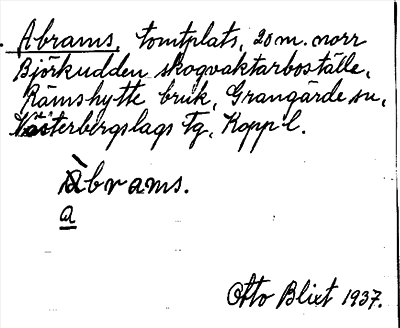 Abrams, tomtplats, 20 m. norr
Björkudden skogvaktarboställe,
Rämshytte bruk, Grangärde sn,
Västerbergslags tg, Kopp l.
àbrams.
a
Otto Blixt 1937.